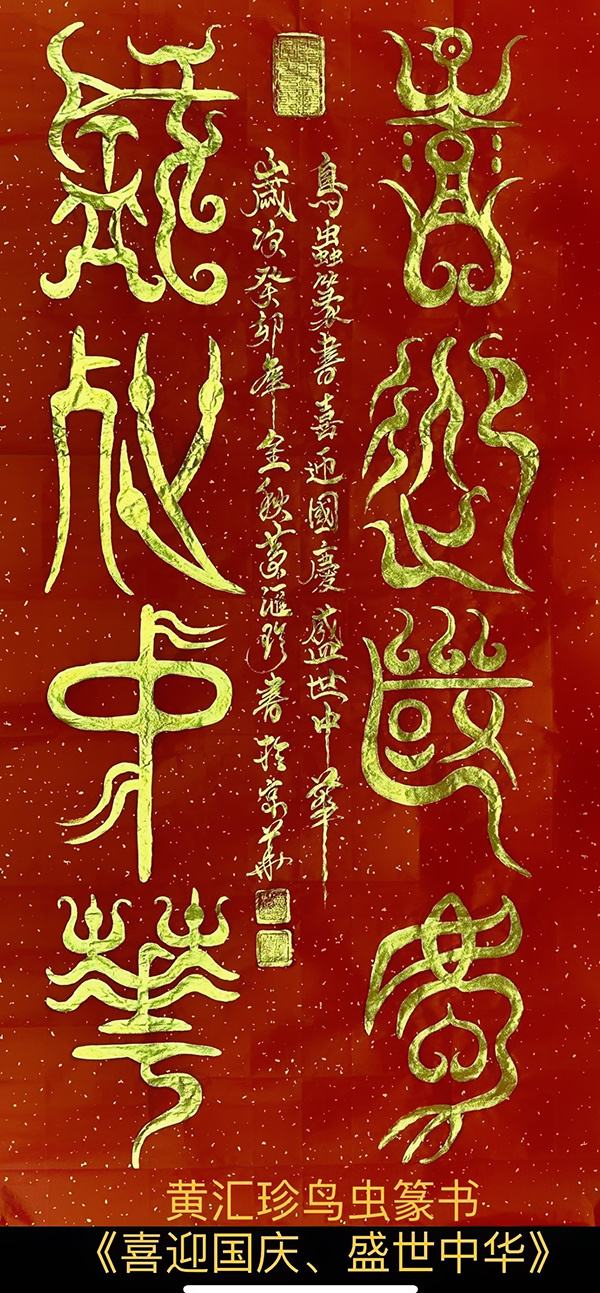 喜迎國慶
盛世中華
鳥蟲篆書喜迎國慶盛世中華
歲次癸卯年金秋黃滙珍書於京華
黄汇珍鸟虫篆书
《喜迎国庆、盛世中华》